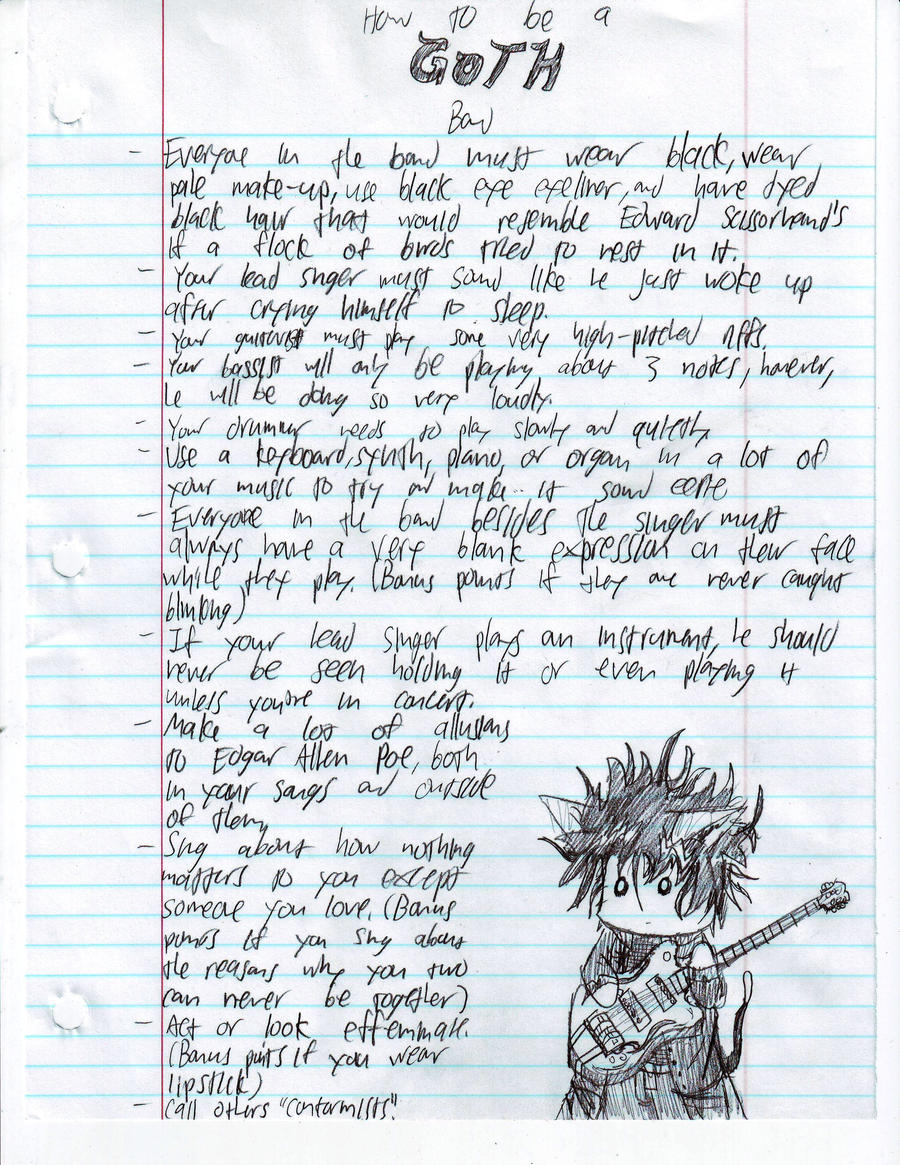 How to be a
GOTH
Band
- Everyone in the band must wear black, wear
pale make-up, use black eye eyeliner, and have dyed
black hair that would resemble Edward Scissorhand's
if a flock of birds tried to nest in it.
- Your lead singer must sound like he just woke up
after crying himself to sleep.
- Your guitarist must play some very high-pitched riffs.
- Your bassist will only be playing about 3 notes, however,
he will be doing so very loudly.
- Your drummer needs to play slowly and quietly.
- Use a keyboard, synth, piano, or organ in a lot of
your music to try and make it sound eerie
- Everyone in the band besides the singer must
always have a very blank expression on their face
while they play. (Bonus points if they are never caught
blinking)
- If your lead singer plays an instrument, he should
never be seen holding it or even playing it
unless you're in concert.
- Make a lot of allusions
to Edgar Allen Poe, both
in your songs and outside
of them.
- Sing about how nothing
matters to you except
someone you love. (Bonus
points if you sing about
the reasons why you two
can never be together)
- Act or look effeminate.
(Bonus points if you wear
lipstick)
- Call others "conformists".